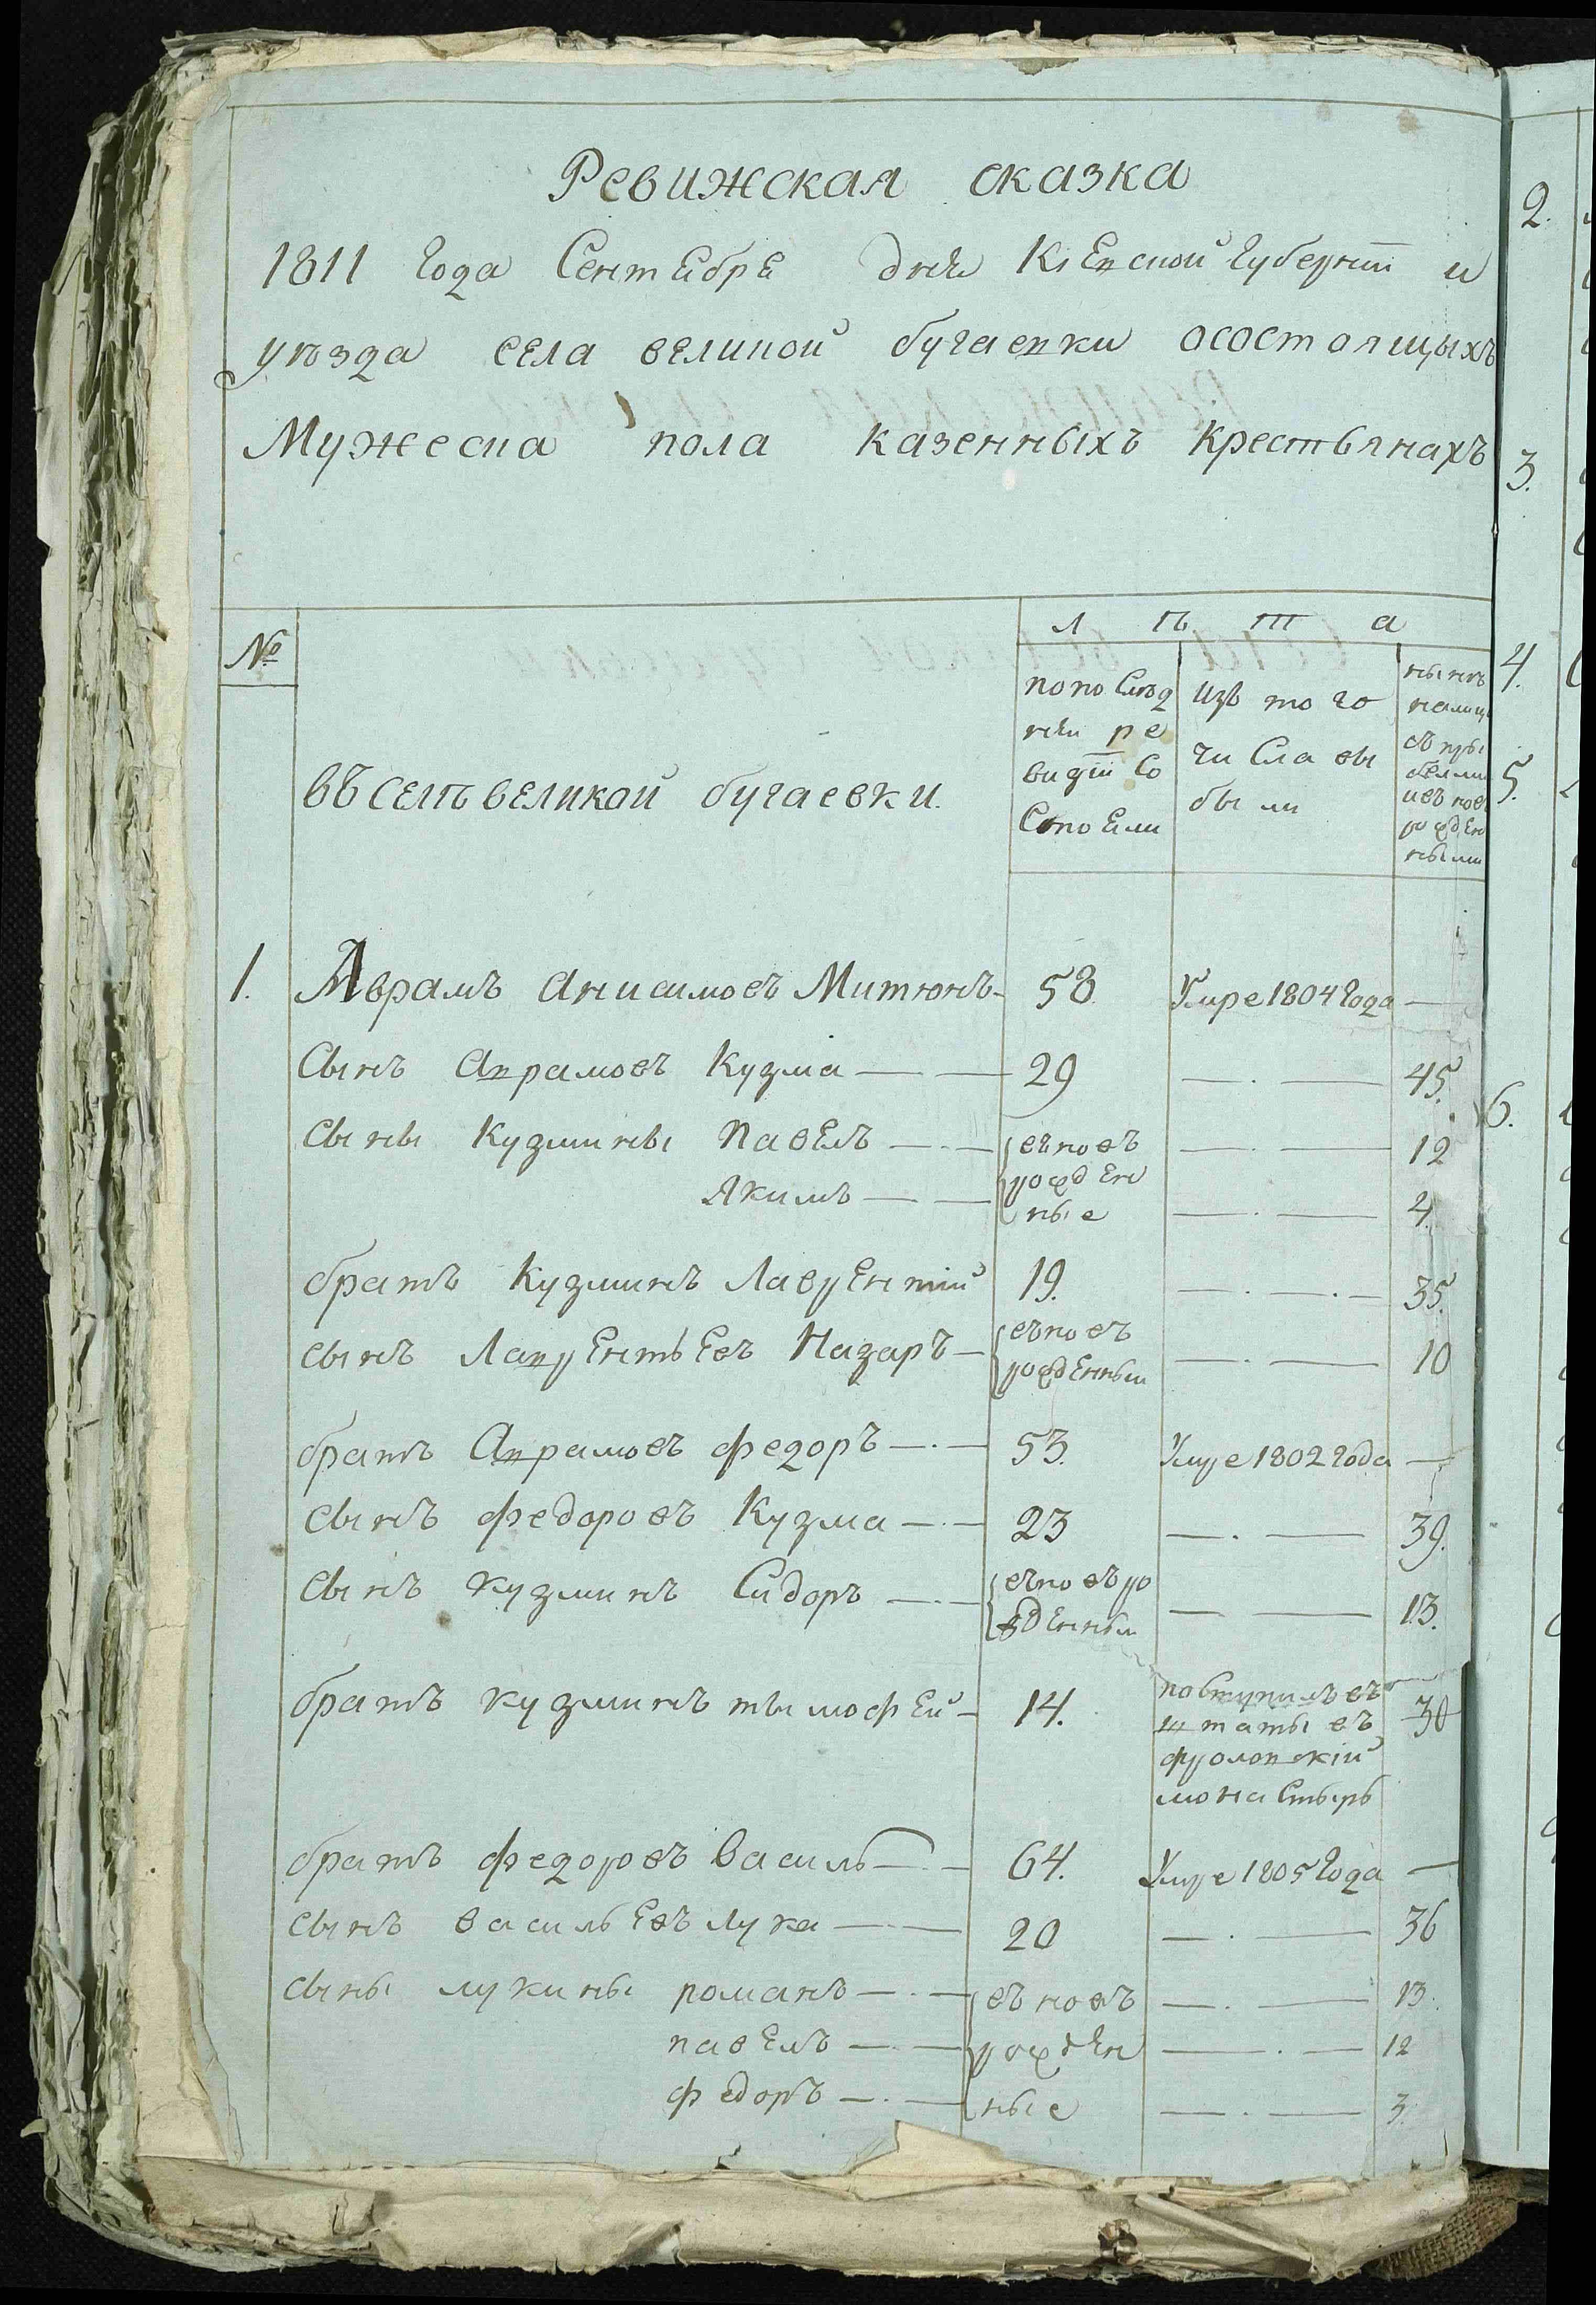 Ревижская сказка
1811 года Сентебре дня Кіевской губерніи и
уѣзда села великой бугаевки осостоящыхъ
Мужеска пола казенныхъ крестьянахъ
№
въ селѣ великой бугаевки.
л ѣ т а
попослѣд
ней ре
визіи со
стоели
изъ того
числа вы
были
нынѣ
налицо
съ прибы
ролы
1. Аврамъ Анисимовъ Митюкъ 58. Умре 1804 года —
Сынъ Аврамовъ Кузма — 29 — 45.
Сыны Кузмины Павелъ — въновъ — 12
рожден
Якимъ — ные — 4.
братъ Кузминъ Лаврентій 19. — 35.
сынъ Лаврентьевъ Назаръ — въновъ рожденный — 10
братъ Аврамовъ Федоръ — 53. Умре 1802 года —
сынъ федоровъ Кузма — 23 — 39.
сынъ кузминъ Сидоръ — въновъ ро
жденный — 13.
братъ кузминъ тымофей — 14. поступилъ въ 30
штаты въ
фроловскій
монастырь
братъ федоровъ Василь — 64. Умре 1805 года —
сынъ васильевъ лука — 20 — 36
сыны лукины романъ — въновъ — 13.
павелъ — рожден — 12
федоръ — ные — 3.
2.
3.
4.
5.
6.